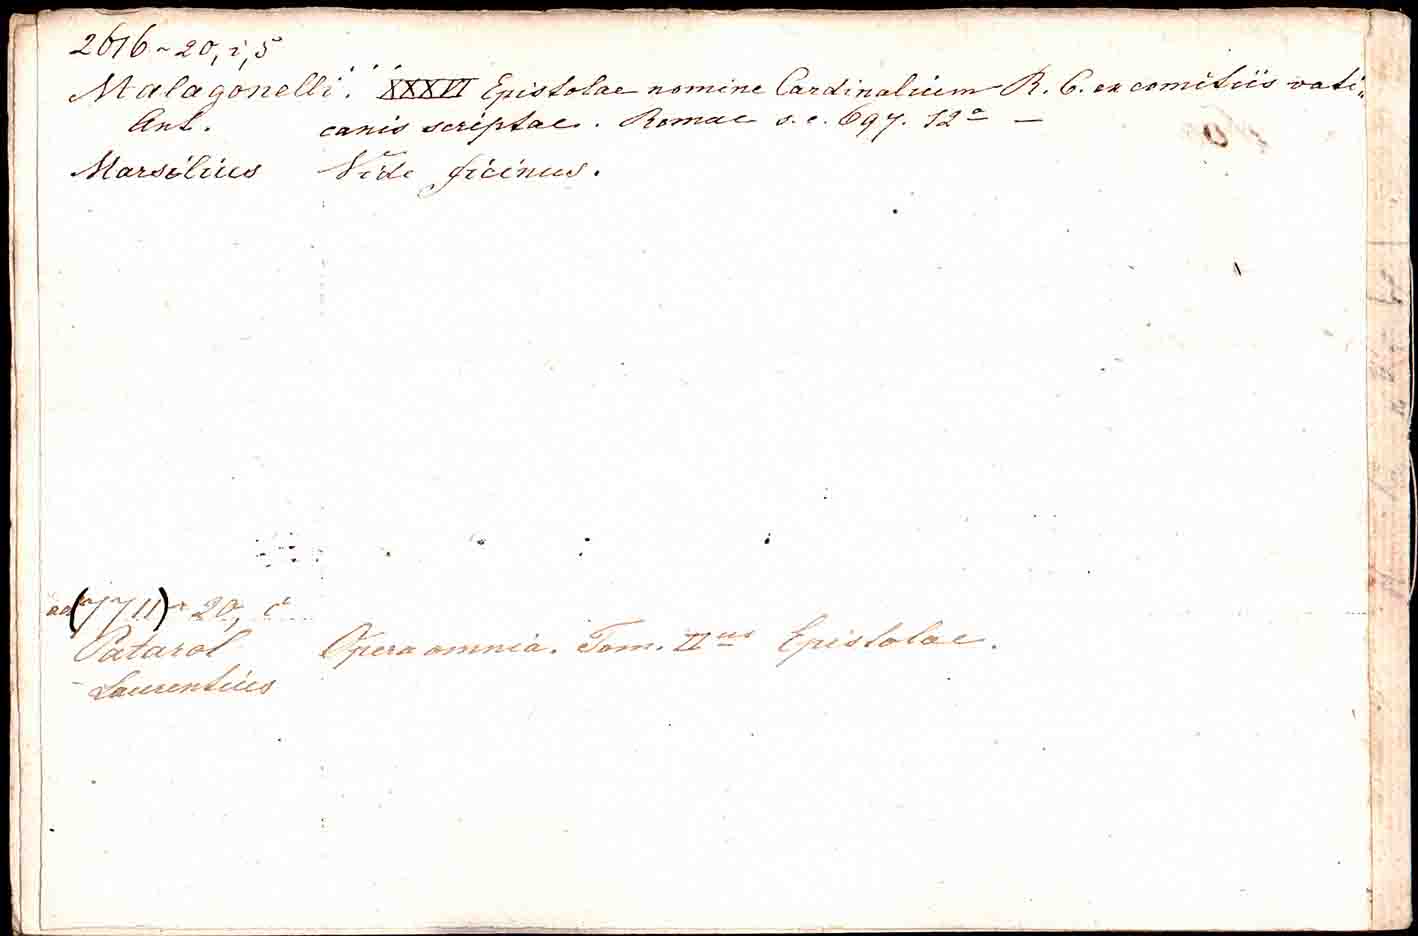 2616 ~ 20, i, 5
Malagonelli. XXXVI Epistolae nomine Cardinalium R. C. ex comitiis vati„
Ant. canis scriptae. Romae s. e. 697. 12ª —
Marsilius Vide ficinus.
ad (7711) ~ 20, c
Patarol Opera omnia. Tom. IIus Epistolae.
Laurentius